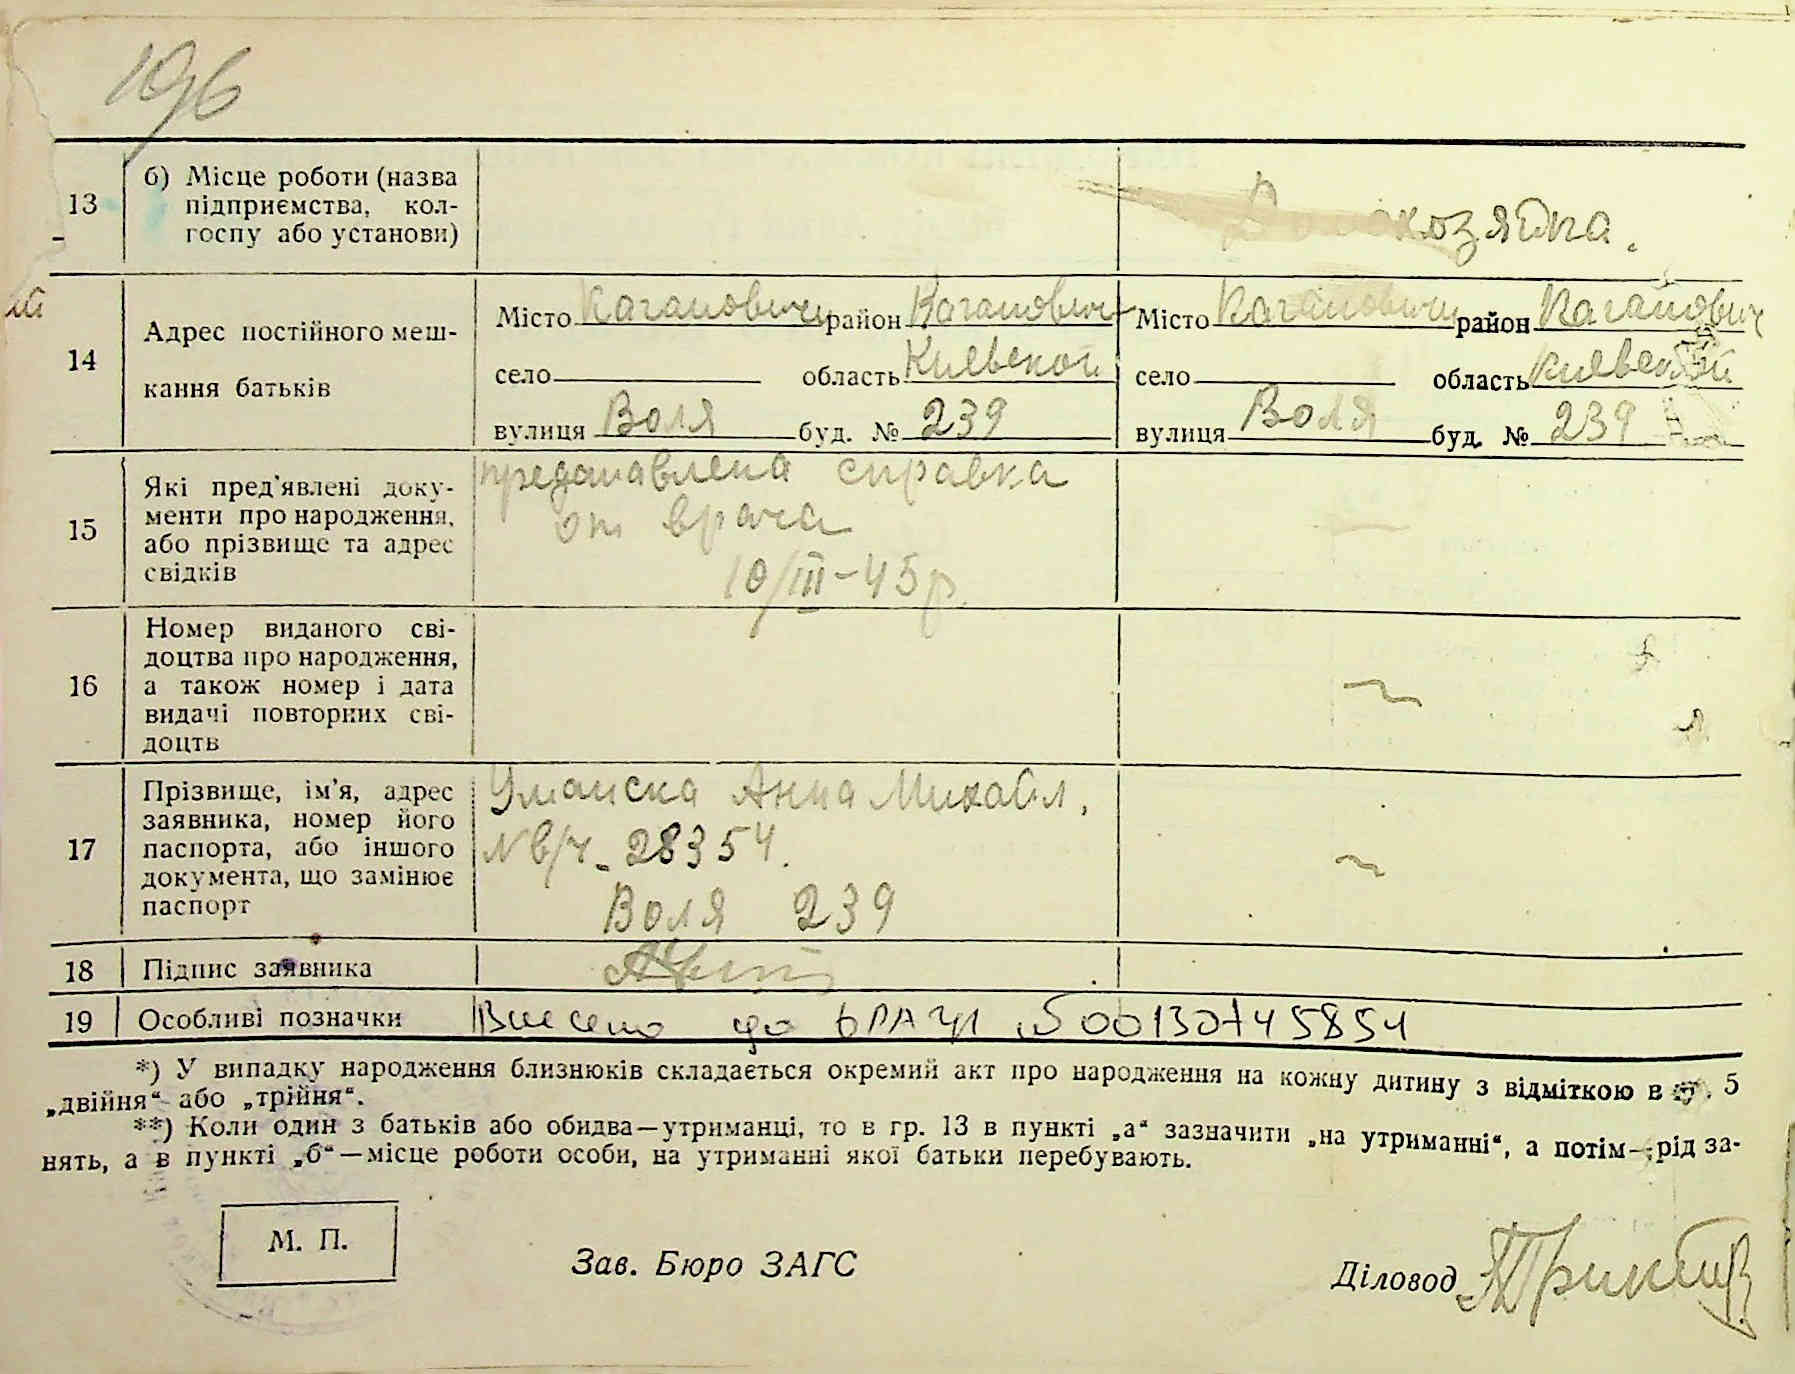 196
13
б) Місце роботи (назва
підприємства, кол-
госпу або установи)
Домохозяйка.
14
Адрес постійного меш-
кання батьків
Місто Каганович район Каганович
село область Киевской
вулиця Воля буд. № 239
Місто Каганович район Каганович
село область Киевской
вулиця Воля буд. № 239
15
Які пред'явлені доку-
менти про народження,
або прізвище та адрес
свідків
предоставлена справка
от врача
10/III-45р.
16
Номер виданого сві-
доцтва про народження,
а також номер і дата
видачі повторних сві-
доцтв
17
Прізвище, ім'я, адрес
заявника, номер його
паспорта, або іншого
документа, що замінює
паспорт
Уманска Анна Михайл.
№ в/ч - 28354.
Воля 239
18
Підпис заявника
19
Особливі позначки
Внесено до ДРАЦС
*) У випадку народження близнюків складається окремий акт про народження на кожну дитину з відміткою в 5
„двійня“ або „трійня“.
**) Коли один з батьків або обидва—утриманці, то в гр. 13 в пункті „а“ зазначити „на утриманні“, а потім—рід за-
нять, а в пункті „б“—місце роботи особи, на утриманні якої батьки перебувають.
М. П.
Зав. Бюро ЗАГС
Діловод